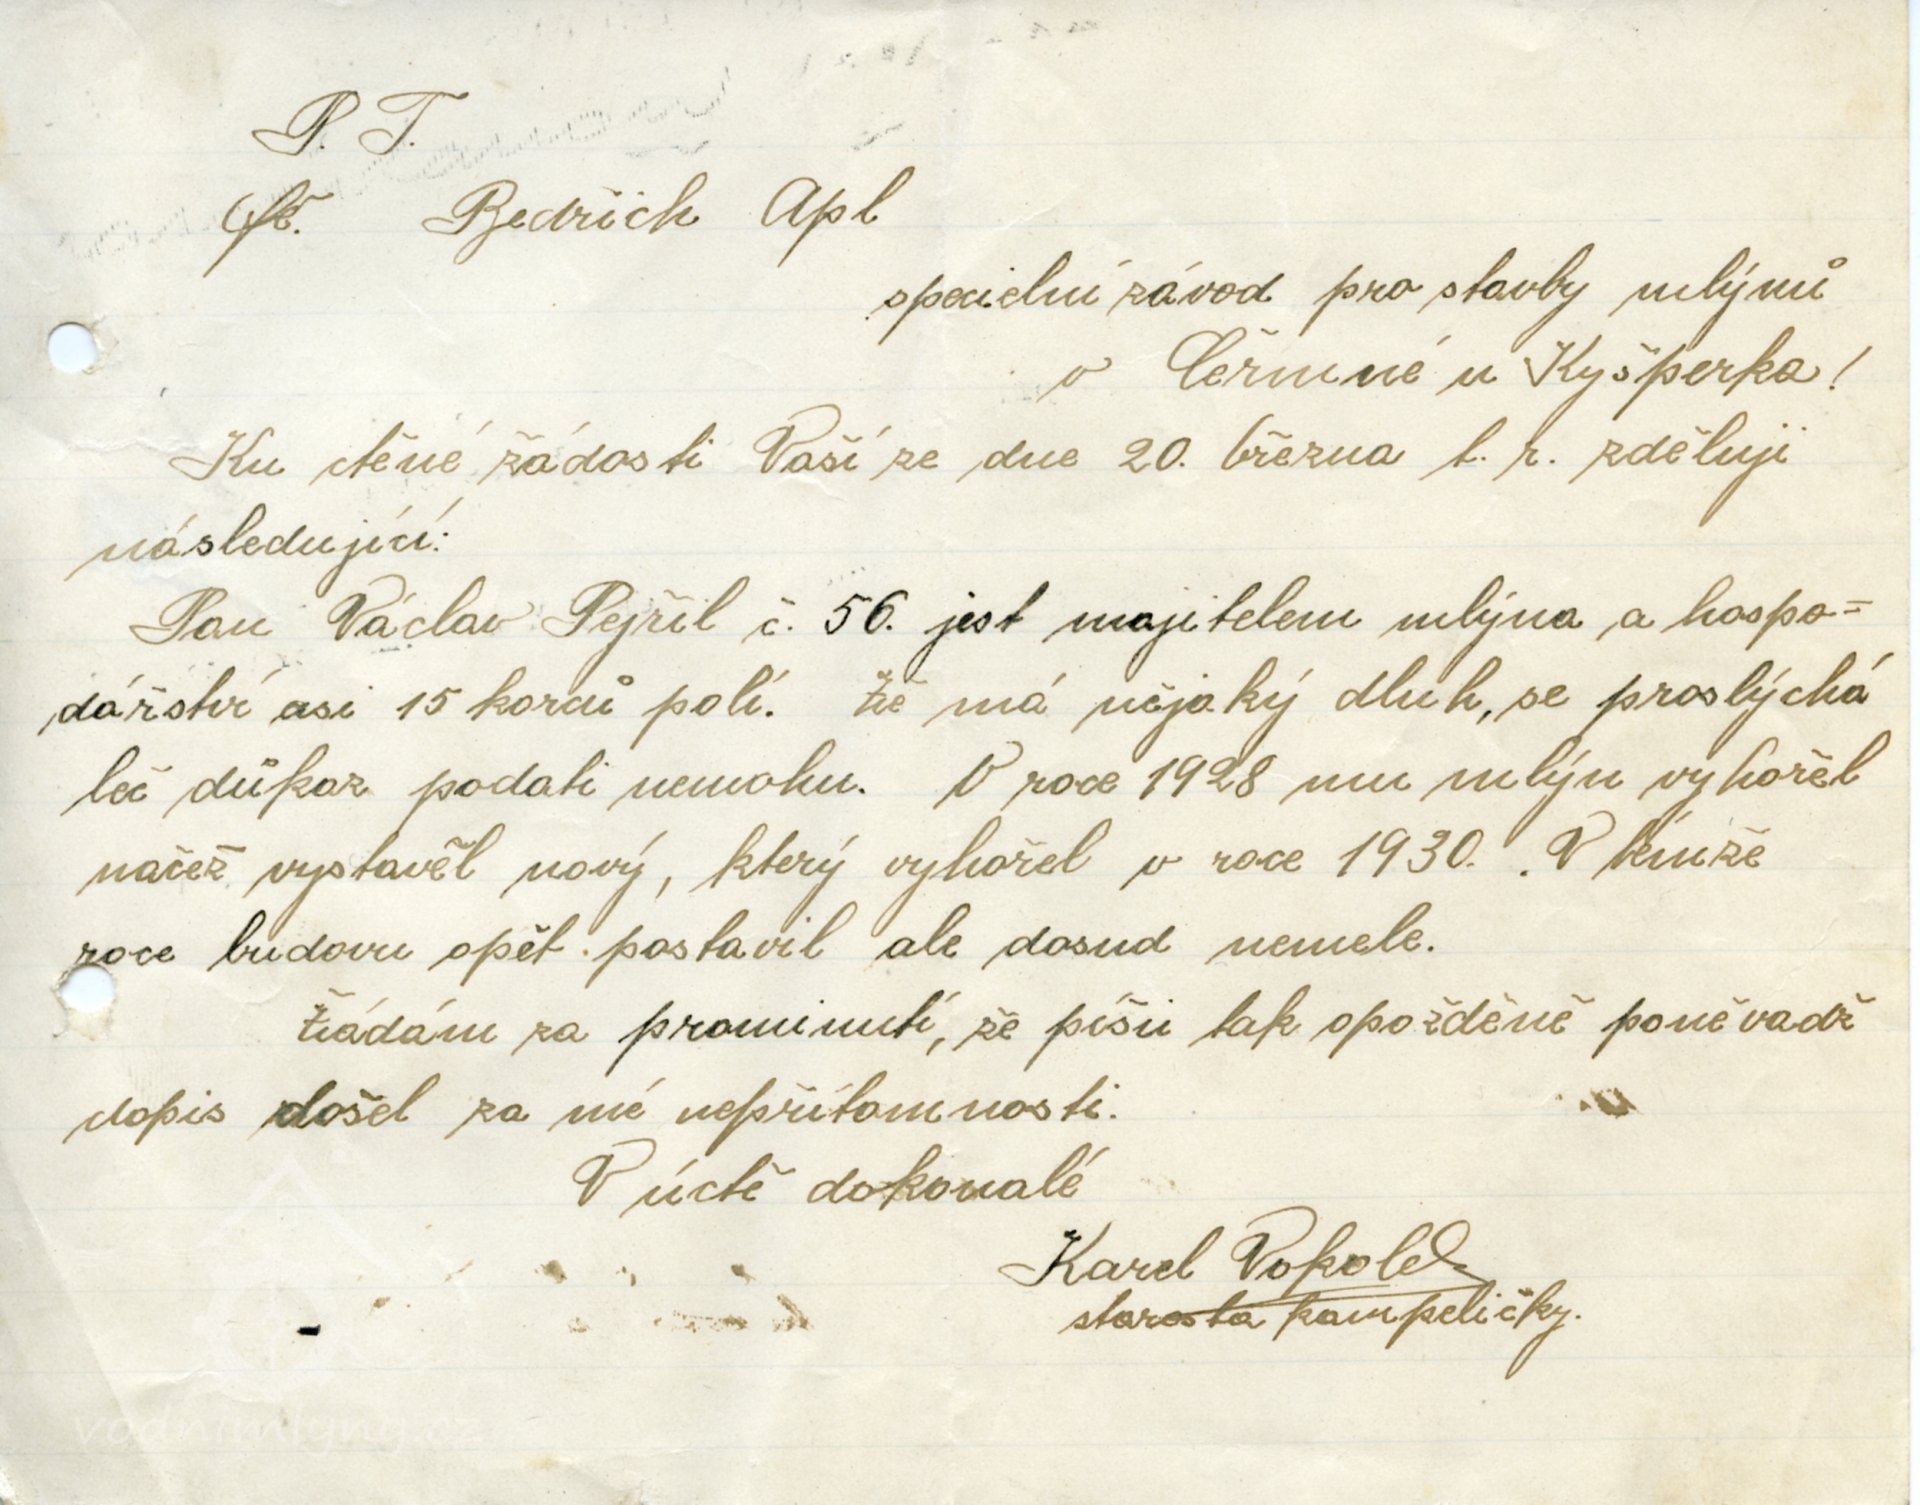 P. T.
Bedřich Apl
specielní závod pro stavby mlýnů
v Čeřmné u Kyšperka!
Ku ctěné žádosti Vaší ze dne 20. března t. r. zděluji
následující:
Pan Václav Pejřil č. 56. jest majitelem mlýna a hospo=
dářství asi 15 korců polí. Že má nějaký dluh, se proslýchá
leč důkaz podati nemohu. V roce 1928 mu mlýn vyhořel
načež vystavěl nový, který vyhořel v roce 1930. V témže
roce budovu opět postavil ale dosud nemele.
Žádám za prominutí, že píši tak opožděně poněvadž
dopis došel za mé nepřítomnosti.
V úctě dokonalé
Karel Vokolek
starosta kampeličky.
vodnimlyny.cz